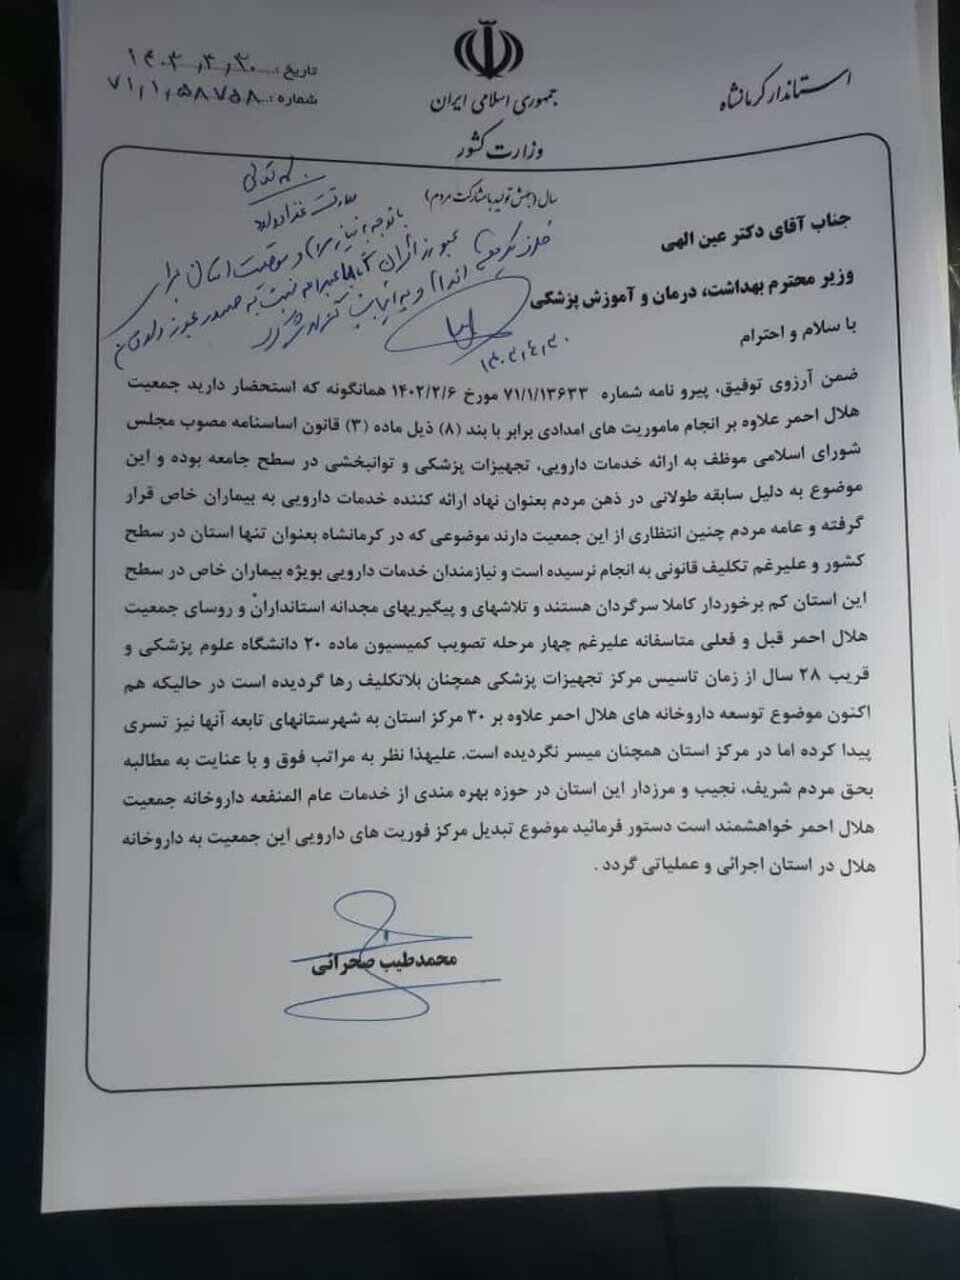 استاندار کرمانشاه
جمهوری اسلامی ایران
وزارت کشور
تاریخ :
شماره : ۷۱٫۱٫۵۸۷۵۸
سال (جهش تولید با مشارکت مردم)
بسمه تعالی
معاونت غذا و دارو
با توجه به نیاز مردم و موقعیت استان برای
عبور زائران
جناب آقای دکتر عین الهی
وزیر محترم بهداشت، درمان و آموزش پزشکی
با سلام و احترام
ضمن آرزوی توفیق، پیرو نامه شماره ۷۱/۱/۱۳۶۳۳ مورخ ۱۴۰۲/۲/۶ همانگونه که استحضار دارید جمعیت
هلال احمر علاوه بر انجام ماموریت های امدادی برابر با بند (۸) ذیل ماده (۳) قانون اساسنامه مصوب مجلس
شورای اسلامی موظف به ارائه خدمات دارویی، تجهیزات پزشکی و توانبخشی در سطح جامعه بوده و این
موضوع به دلیل سابقه طولانی در ذهن مردم بعنوان نهاد ارائه کننده خدمات دارویی به بیماران خاص قرار
گرفته و عامه مردم چنین انتظاری از این جمعیت دارند موضوعی که در کرمانشاه بعنوان تنها استان در سطح
کشور و علیرغم تکلیف قانونی به انجام نرسیده است و نیازمندان خدمات دارویی بویژه بیماران خاص در سطح
این استان کم برخوردار کاملا سرگردان هستند و تلاشهای و پیگیریهای مجدانه استانداران و روسای جمعیت
هلال احمر قبل و فعلی متاسفانه علیرغم چهار مرحله تصویب کمیسیون ماده ۲۰ دانشگاه علوم پزشکی و
قریب ۲۸ سال از زمان تاسیس مرکز تجهیزات پزشکی همچنان بلاتکلیف رها گردیده است در حالیکه هم
اکنون موضوع توسعه داروخانه های هلال احمر علاوه بر ۳۰ مرکز استان به شهرستانهای تابعه آنها نیز تسری
پیدا کرده اما در مرکز استان همچنان میسر نگردیده است. علیهذا نظر به مراتب فوق و با عنایت به مطالبه
بحق مردم شریف، نجیب و مرزدار این استان در حوزه بهره مندی از خدمات عام المنفعه داروخانه جمعیت
هلال احمر خواهشمند است دستور فرمائید موضوع تبدیل مرکز فوریت های دارویی این جمعیت به داروخانه
هلال در استان اجرائی و عملیاتی گردد .
محمدطیب صحرائی